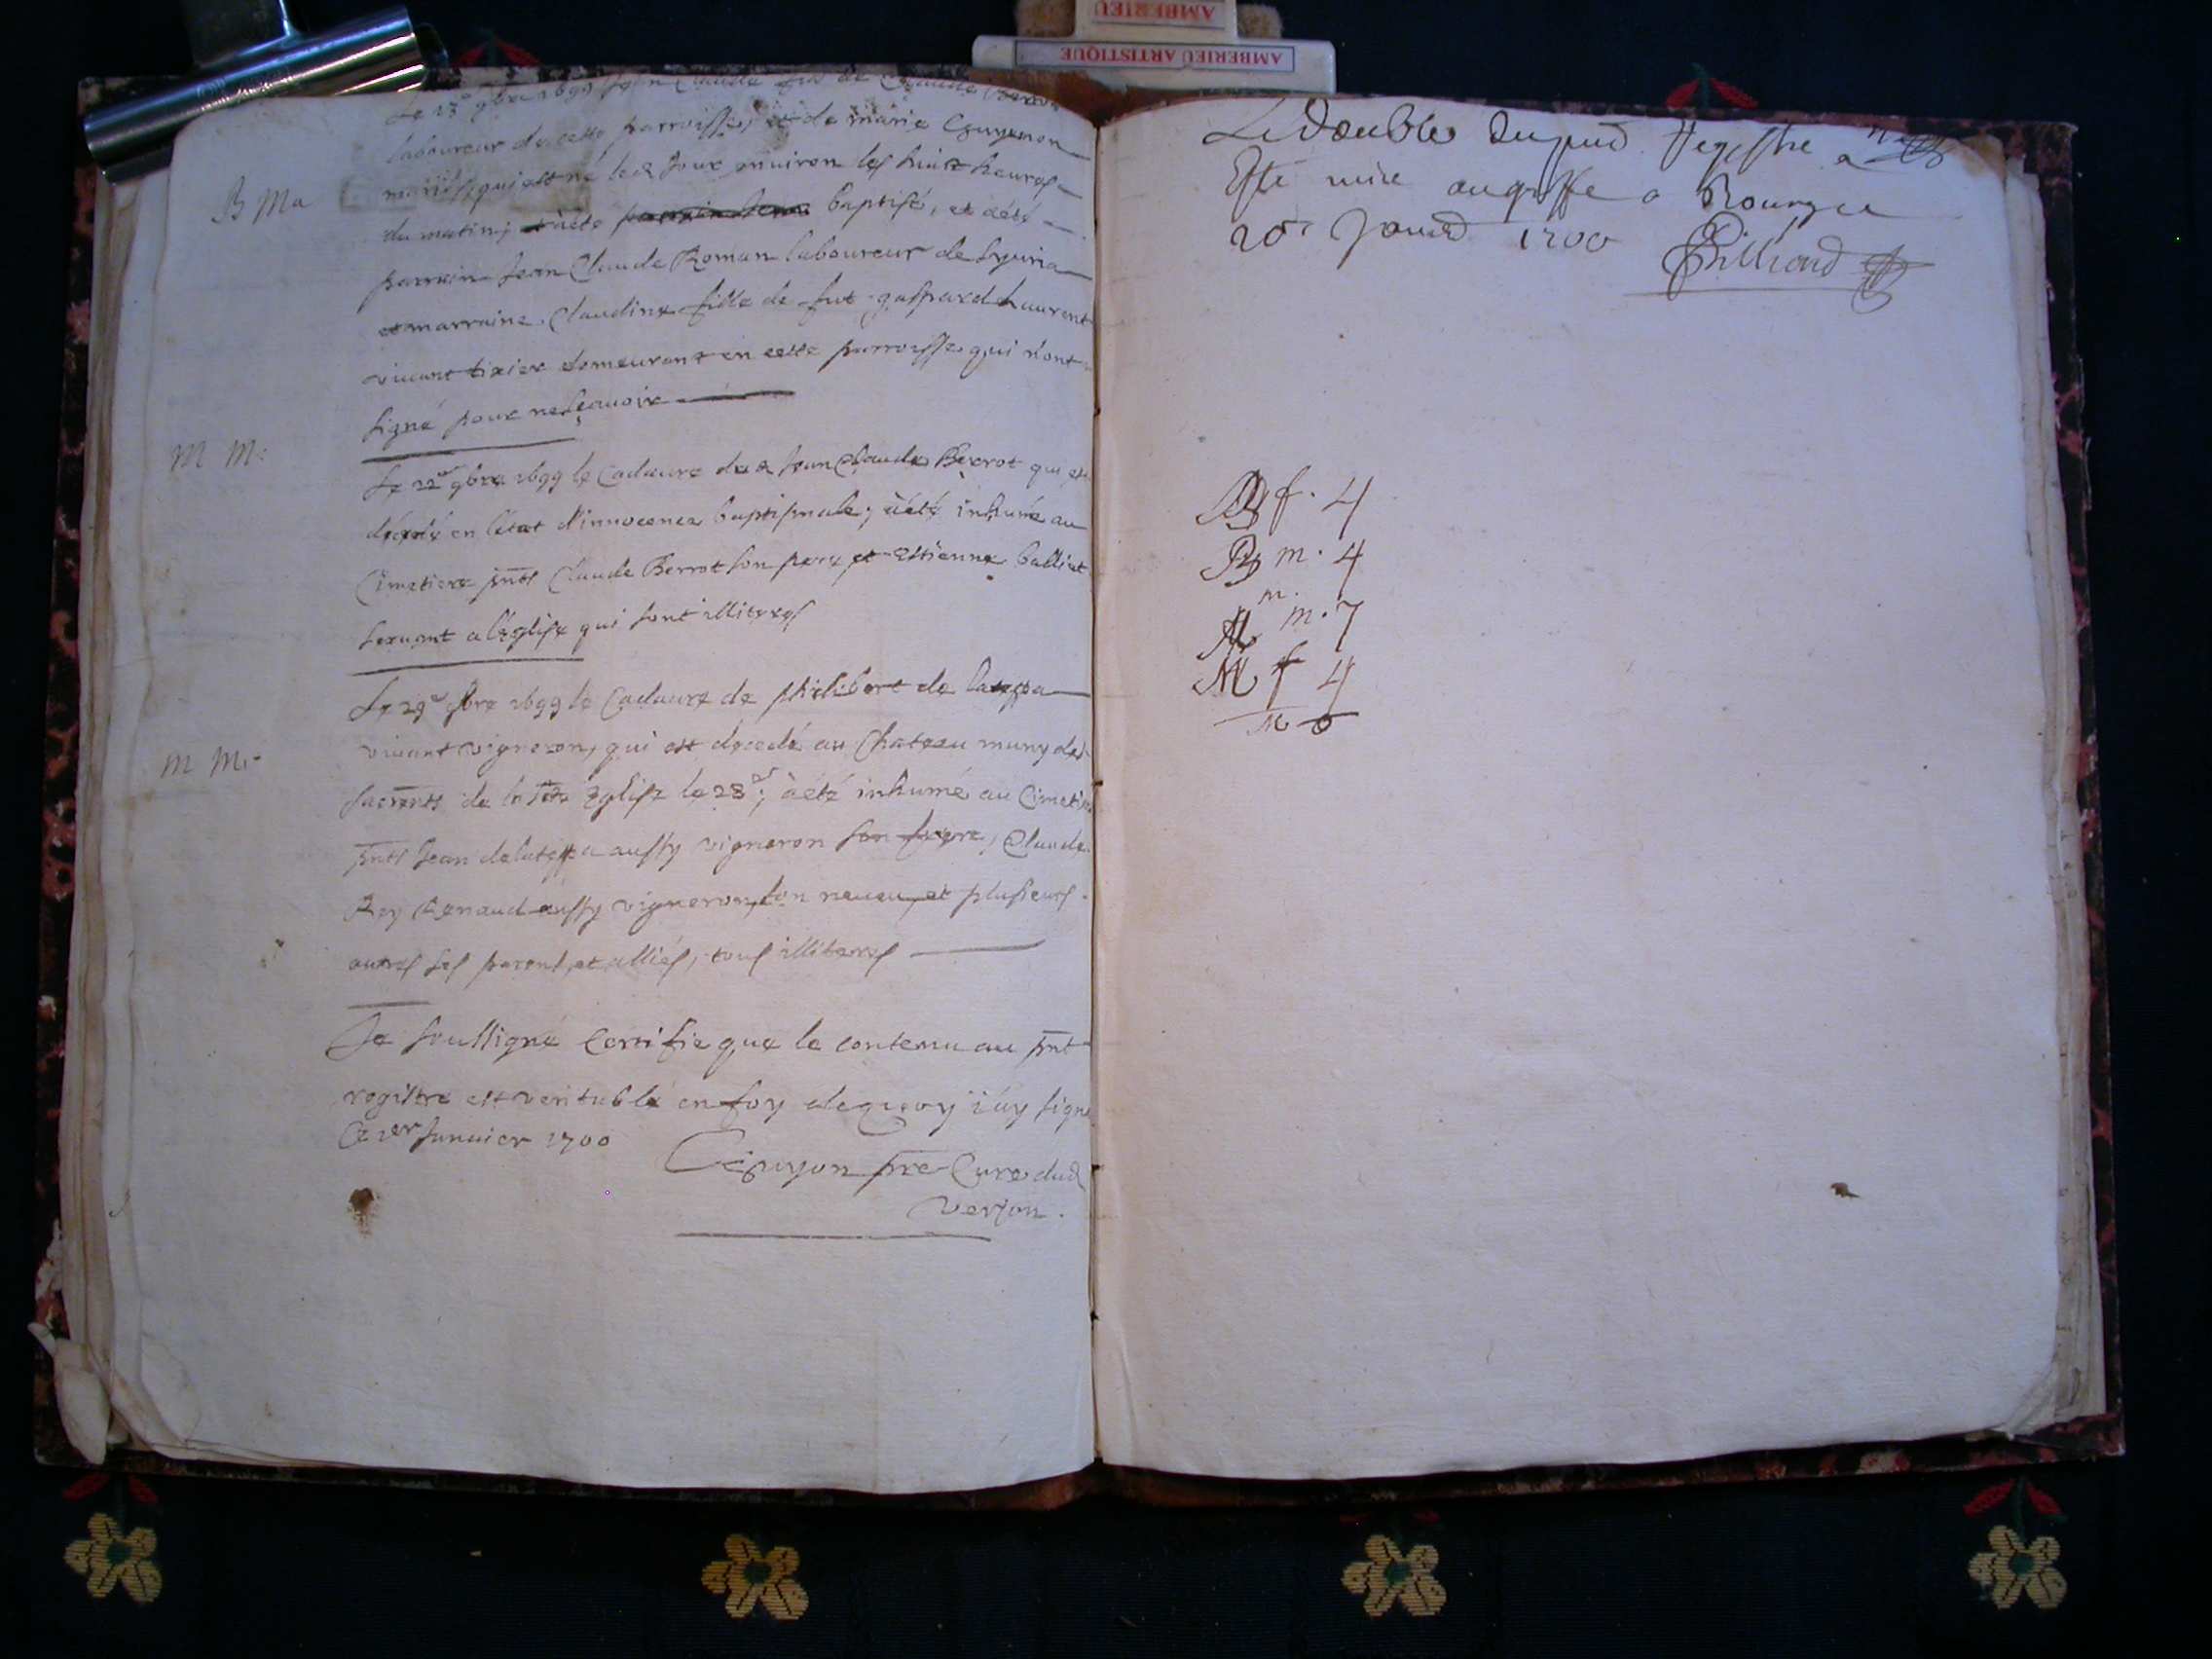 AMBERIEU
AMBERIEU ARTISTIQUE
Le 13e 9bre 1699 Jean Claude fils de Claude Berrot
laboureur de cette parroisse, et de marie Guyenon
mariés, qui est né led Jour enuiron les huit heures
B Ma
du matin, a été baptisé, et a été
parrain Jean Claude Roman laboureur de
et marraine Claudine fille de fut gaspard Laurent
viuant tixier demeurant en cette parroisse qui n'ont
signé pour ne sçauoir
M M.
Le 22e 9bre 1699 le Cadaure dud Jean Claude Berrot qui est
décédé en l'état d'innocence baptismale, a été inhumé au
Cimetiere pnts Claude Berrot son pere et Estienne balliet
seruant a l'église qui sont illiteres
Le 29e 9bre 1699 le Cadaure de philibert de
M M.
viuant vigneron, qui est decedé au Chateau muny des
sacrents de la ste Eglise le 28e, a été inhumé au Cimetiere
pnts Jean aussy vigneron son Claude
Rey Renaud aussy vigneron, son neueu, et plusieurs
autres ses parents, et alliés, tous illiteres
Je soussigné Certifie que le contenu au pnt
registre est veritable en foy dequoy i'ay signé
Ce 1er Januier 1700
pre Curé dud
verjon.
Le double du pnt Registre a
Esté mise au greffe a Bourg ce
20e Januier 1700
B f. 4
B m. 4
m.
M m. 7
M f 4
M 0